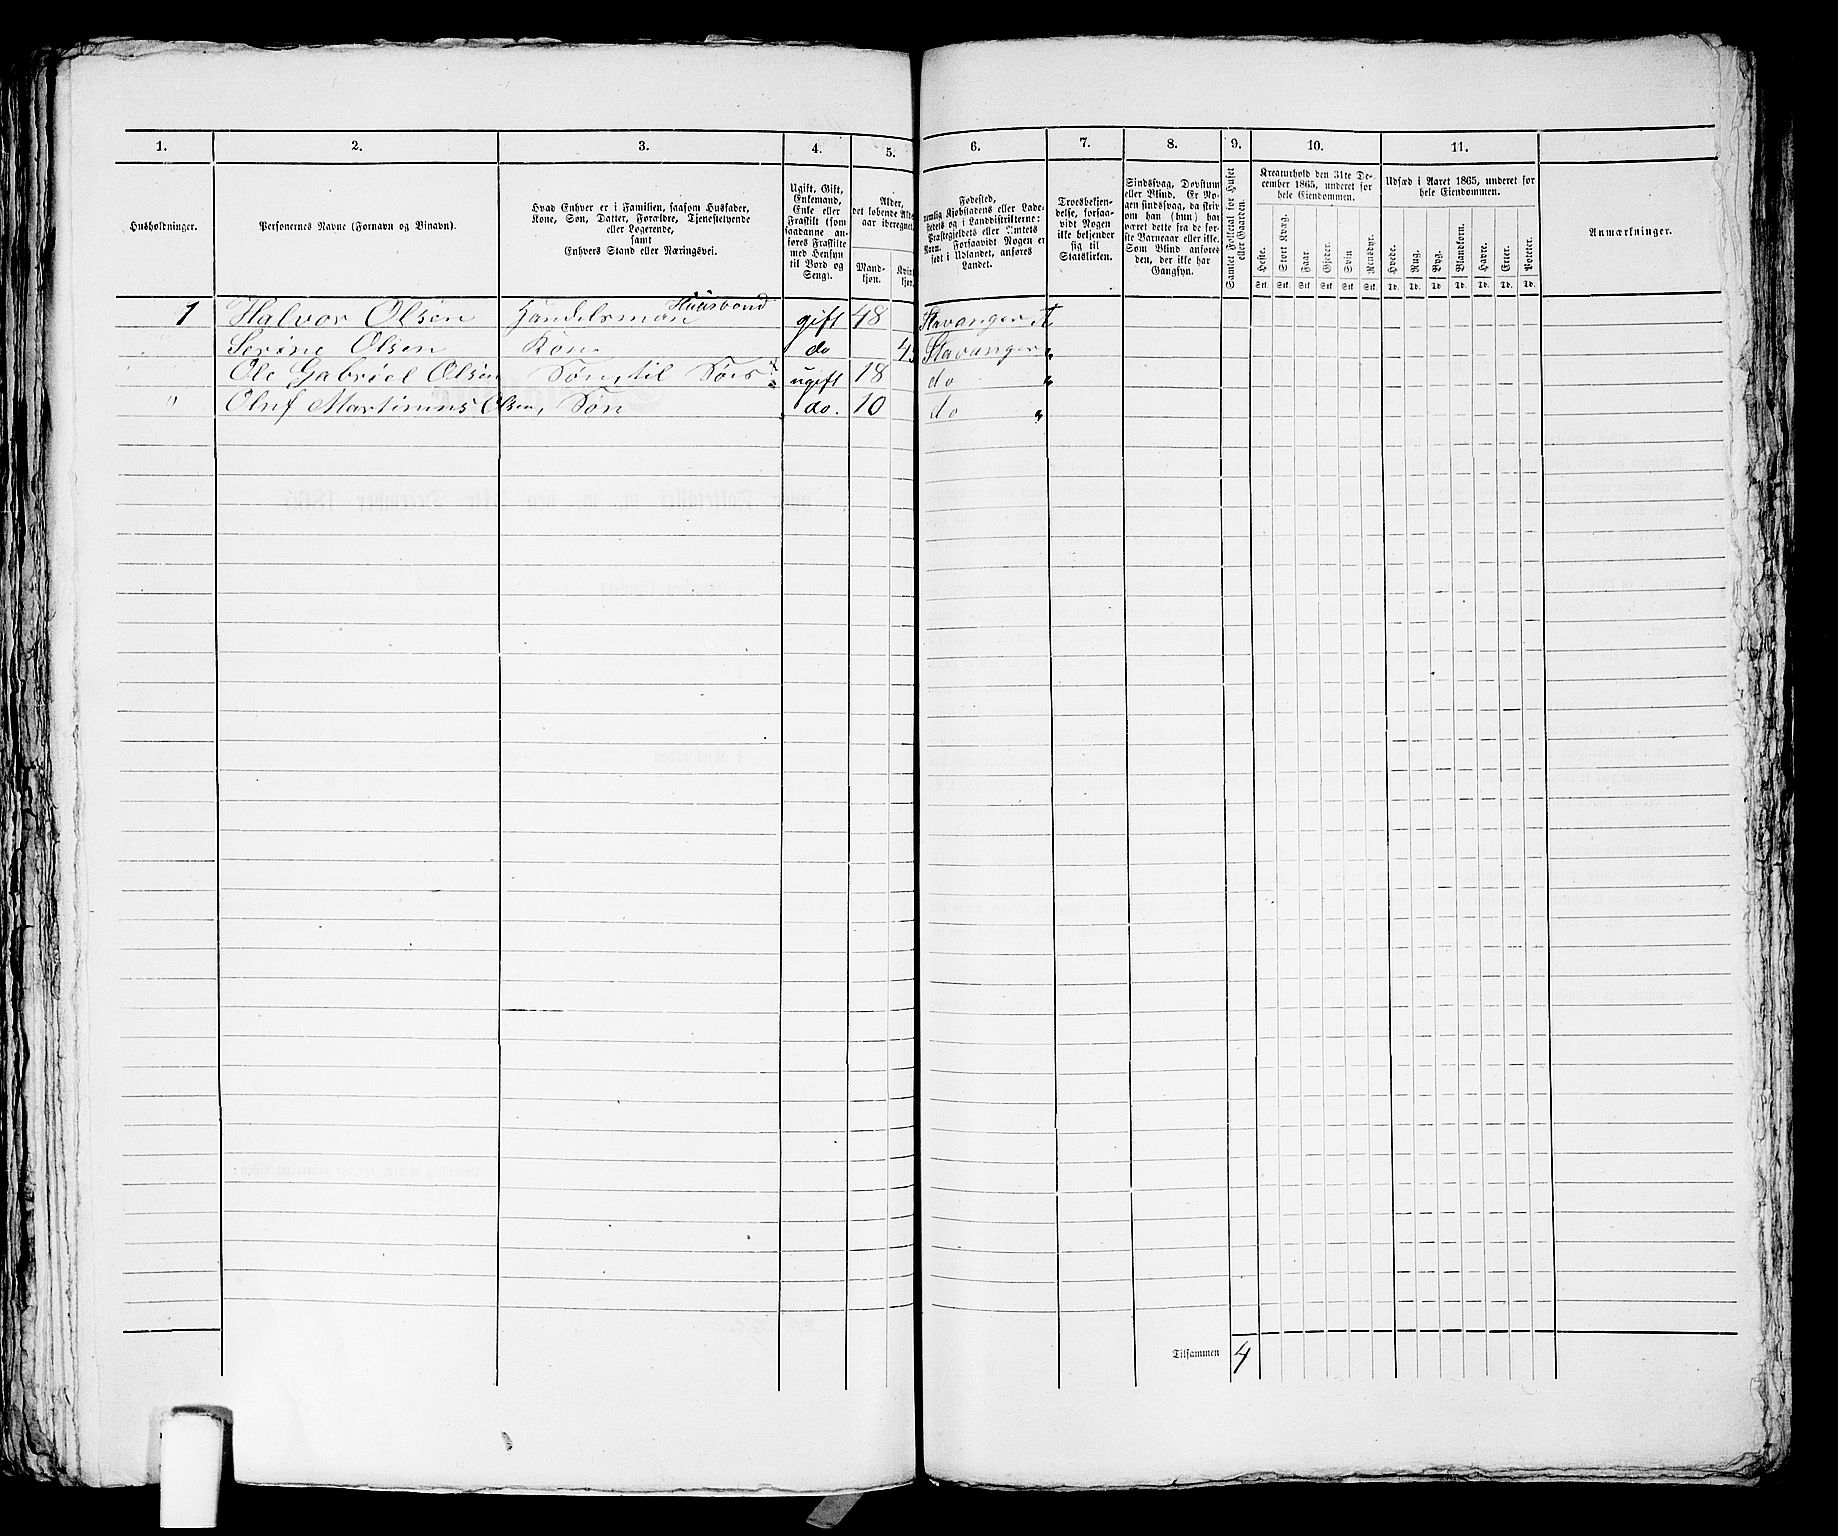 1. 2. 3. 4. 5. 6. 7. 8. 9. 10. 11.
Husholdninger.
Personernes Navne (Fornavn og Binavn).
Hvad Enhver er i Familien, saasom Husfader,
Kone, Søn, Datter, Forældre, Tjenestetyende
eller Logerende,
samt
Enhvers Stand eller Næringsvei.
Ugift, Gift,
Enkemand,
Enke eller
Fraskilt (som
saadanne an-
føres Fraskilte
med Hensyn
til Bord og
Seng).
Alder,
det løbende Alders-
aar iberegnet.
Mand-
kjøn.
Kvin-
kjøn.
Fødested,
nemlig Kjøbstadens eller Lade-
stedets og i Landdistrikterne:
Præstegjeldets eller Amtets
Navn. Forsaavidt Nogen er
født i Udlandet, anføres
Landet.
Troesbekjen-
delse, forsaa-
vidt Nogen
ikke bekjender
sig til
Statskirken.
Sindssvag, Døvstum
eller Blind. Er No-
gen sindssvag, da skriv
om han (hun) har
været dette fra de før-
ste Barneaar eller ikke.
Som Blind anføres
den, der ikke har
Gangsyn.
Samlet Folketal for Huset
eller Gaarden.
Kreaturhold den 31te De-
cember 1865, underet for
hele Eiendommen.
Heste. Stort Kvæg. Faar Gjeder. Svin Rensdyr.
Stk. Stk. Stk. Stk Stk Stk.
Udsæd i Aaret 1865, underet for
hele Eiendommen.
Hvede. Rug. Byg. Blandkorn. Havre. Erter. Poteter.
Td. Td. Td Td. Td. Td. Td.
Anmærkninger.
1 Halvor Olsen Handelsman Huusbond gift 48 Stavanger
" Serine Olsen Kone do Stavanger "
" Ole Gabriel Olsen Søn, til Søes ugift 18 do "
" Oluf Martinius Olsen, Søn do. 10 do "
Tilsammen 4